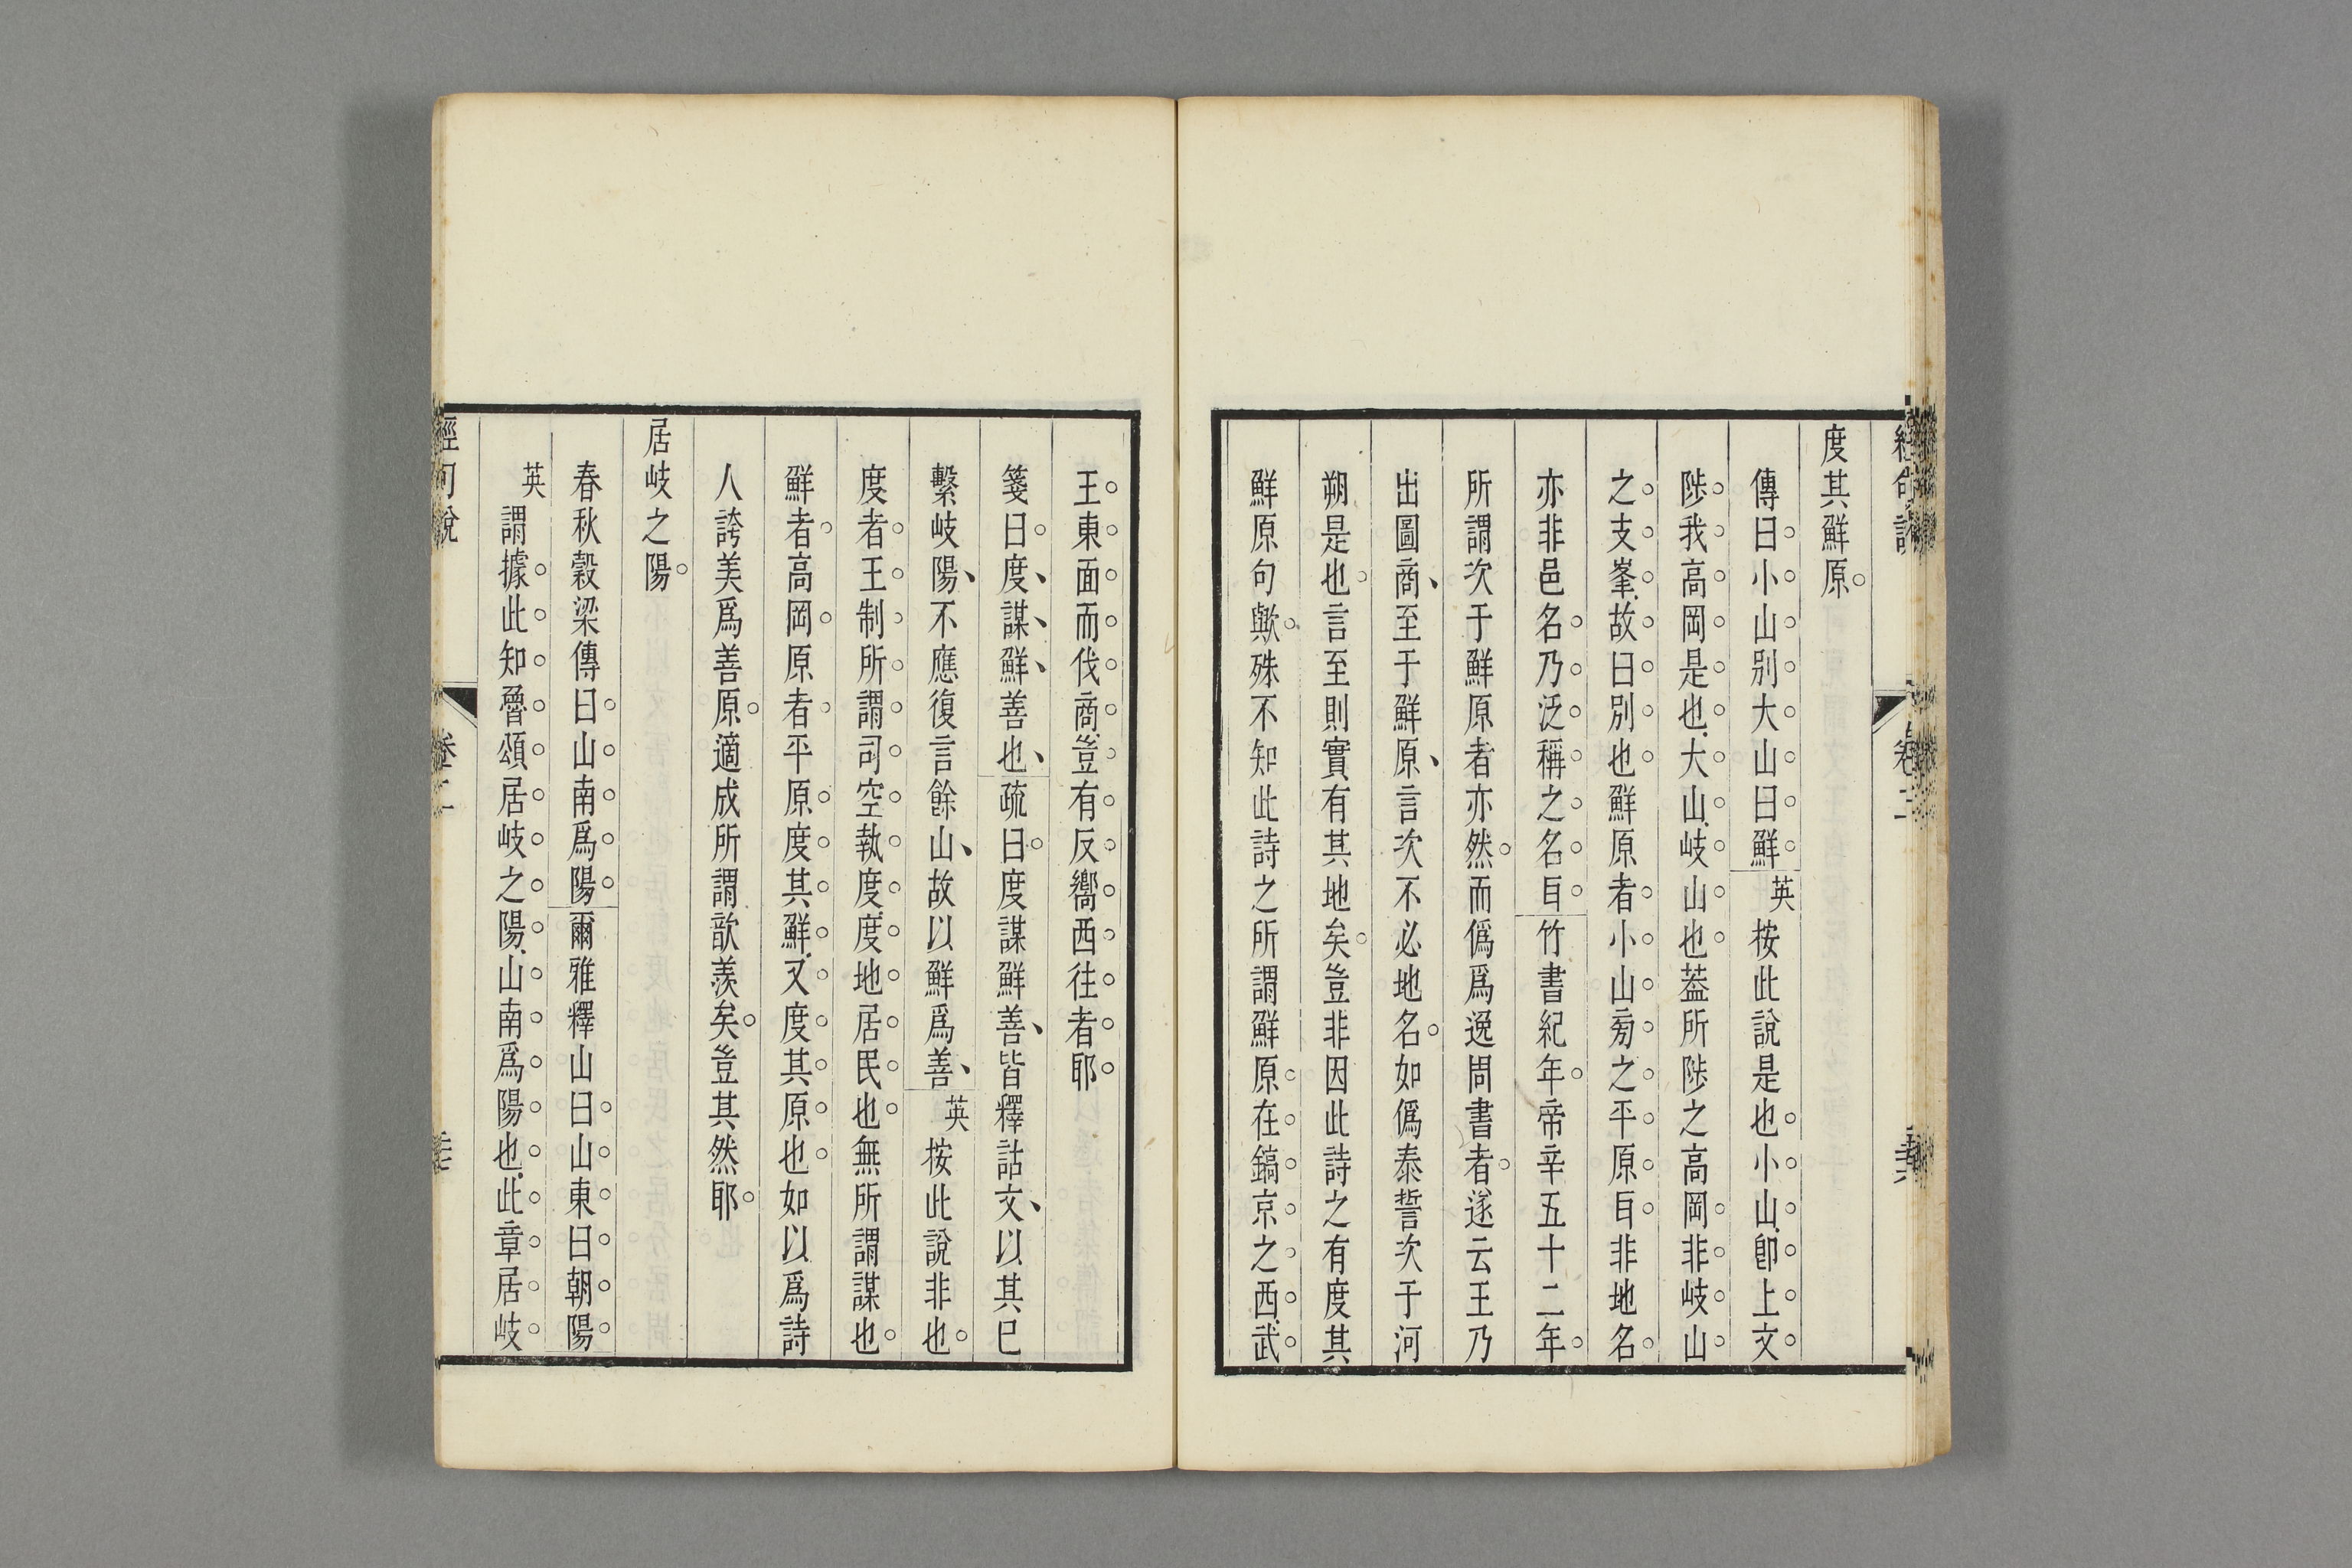 度其鮮原
傳曰小山別大山曰鮮英按此說是也小山卽上文
陟我高岡是也大山岐山也葢所陟之高岡非岐山
之支峯故曰別也鮮原者小山旁之平原𦣹非地名
亦非邑名乃泛稱之名𦣹竹書紀年帝辛五十二年
所謂次于鮮原者亦然而僞爲逸周書者遂云王乃
出圖商至于鮮原言次不必地名如僞泰誓次于河
朔是也言至則實有其地矣豈非因此詩之有度其
鮮原句歟殊不知此詩之所謂鮮原在鎬京之西武
王東面而伐商豈有反嚮西往者耶
箋曰度謀鮮善也疏曰度謀鮮善皆釋詁文以其已
繫岐陽不應復言餘山故以鮮爲善英按此說非也
度者王制所謂司空執度度地居民也無所謂謀也
鮮者高岡原者平原度其鮮又度其原也如以爲詩
人誇美爲善原適成所謂歆羨矣豈其然耶
居岐之陽
春秋穀梁傳曰山南爲陽爾雅釋山曰山東曰朝陽
英謂據此知魯頌居岐之陽山南爲陽也此章居岐